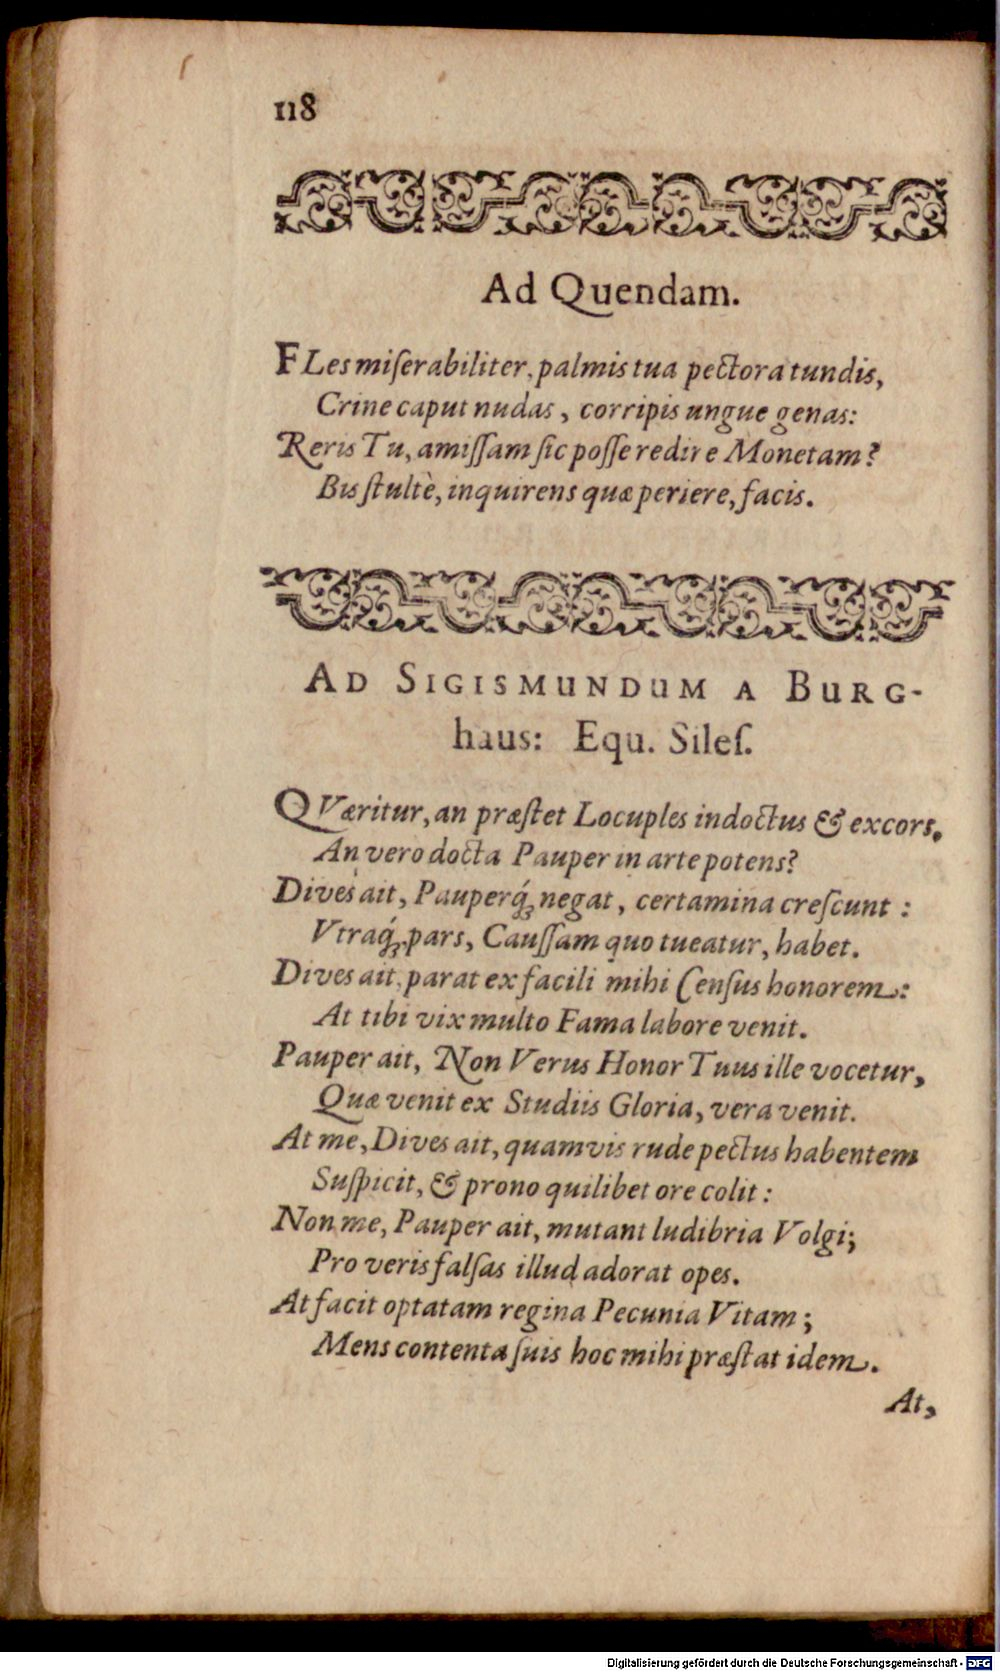 118
Ad Quendam.
FLes miſerabiliter, palmis tua pectora tundis,
Crine caput nudas, corripis ungue genas:
Reris Tu, amiſſam ſic poſſe redire Monetam?
Bis ſtultè, inquirens quæ periere, facis.
AD SIGISMUNDUM A BURG-
haus: Equ. Sileſ.
QVæritur, an præſtet Locuples indoctus & excors,
An vero docta Pauper in arte potens?
Dives ait, Pauperq́; negat, certamina creſcunt:
Vtraq́; pars, Cauſſam quo tueatur, habet.
Dives ait, parat ex facili mihi Cenſus honorem:
At tibi vix multo Fama labore venit.
Pauper ait, Non Verus Honor Tuus ille vocetur,
Quæ venit ex Studiis Gloria, vera venit.
At me, Dives ait, quamvis rude pectus habentem
Suſpicit, & prono quilibet ore colit:
Non me, Pauper ait, mutant ludibria Volgi;
Pro veris falſas illud adorat opes.
At facit optatam regina Pecunia Vitam;
Mens contenta ſuis hoc mihi præſtat idem.
At,
Digitalisierung gefördert durch die Deutsche Forschungsgemeinschaft - DFG